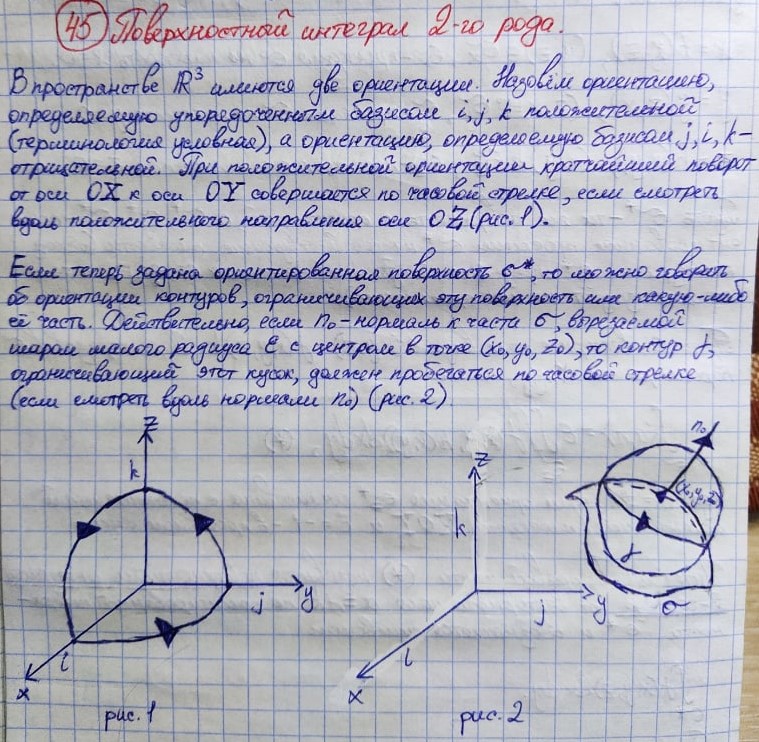 45 Поверхностный интеграл 2-го рода.
В пространстве ℝ³ имеются две ориентации. Назовём ориентацию,
определяемую упорядоченным базисом i, j, k положительной
(терминология условная), а ориентацию, определяемую базисом j, i, k-
отрицательной. При положительной ориентации кратчайший поворот
от оси OX к оси OY совершается по часовой стрелке, если смотреть
вдоль положительного направления оси OZ (рис. 1).
Если теперь задана ориентированная поверхность σ*, то можно говорить
об ориентации контуров, ограничивающих эту поверхность или какую-либо
её часть. Действительно, если n₀-нормаль к части σ, вырезаемой
шаром малого радиуса ε с центром в точке (x₀, y₀, z₀), то контур γ,
ограничивающий этот кусок, должен пробегаться по часовой стрелке
(если смотреть вдоль нормали n₀) (рис. 2).
z
k
j
y
i
x
рис. 1
z
k
j
y
i
x
n₀
(x₀, y₀, z₀)
γ
σ
рис. 2